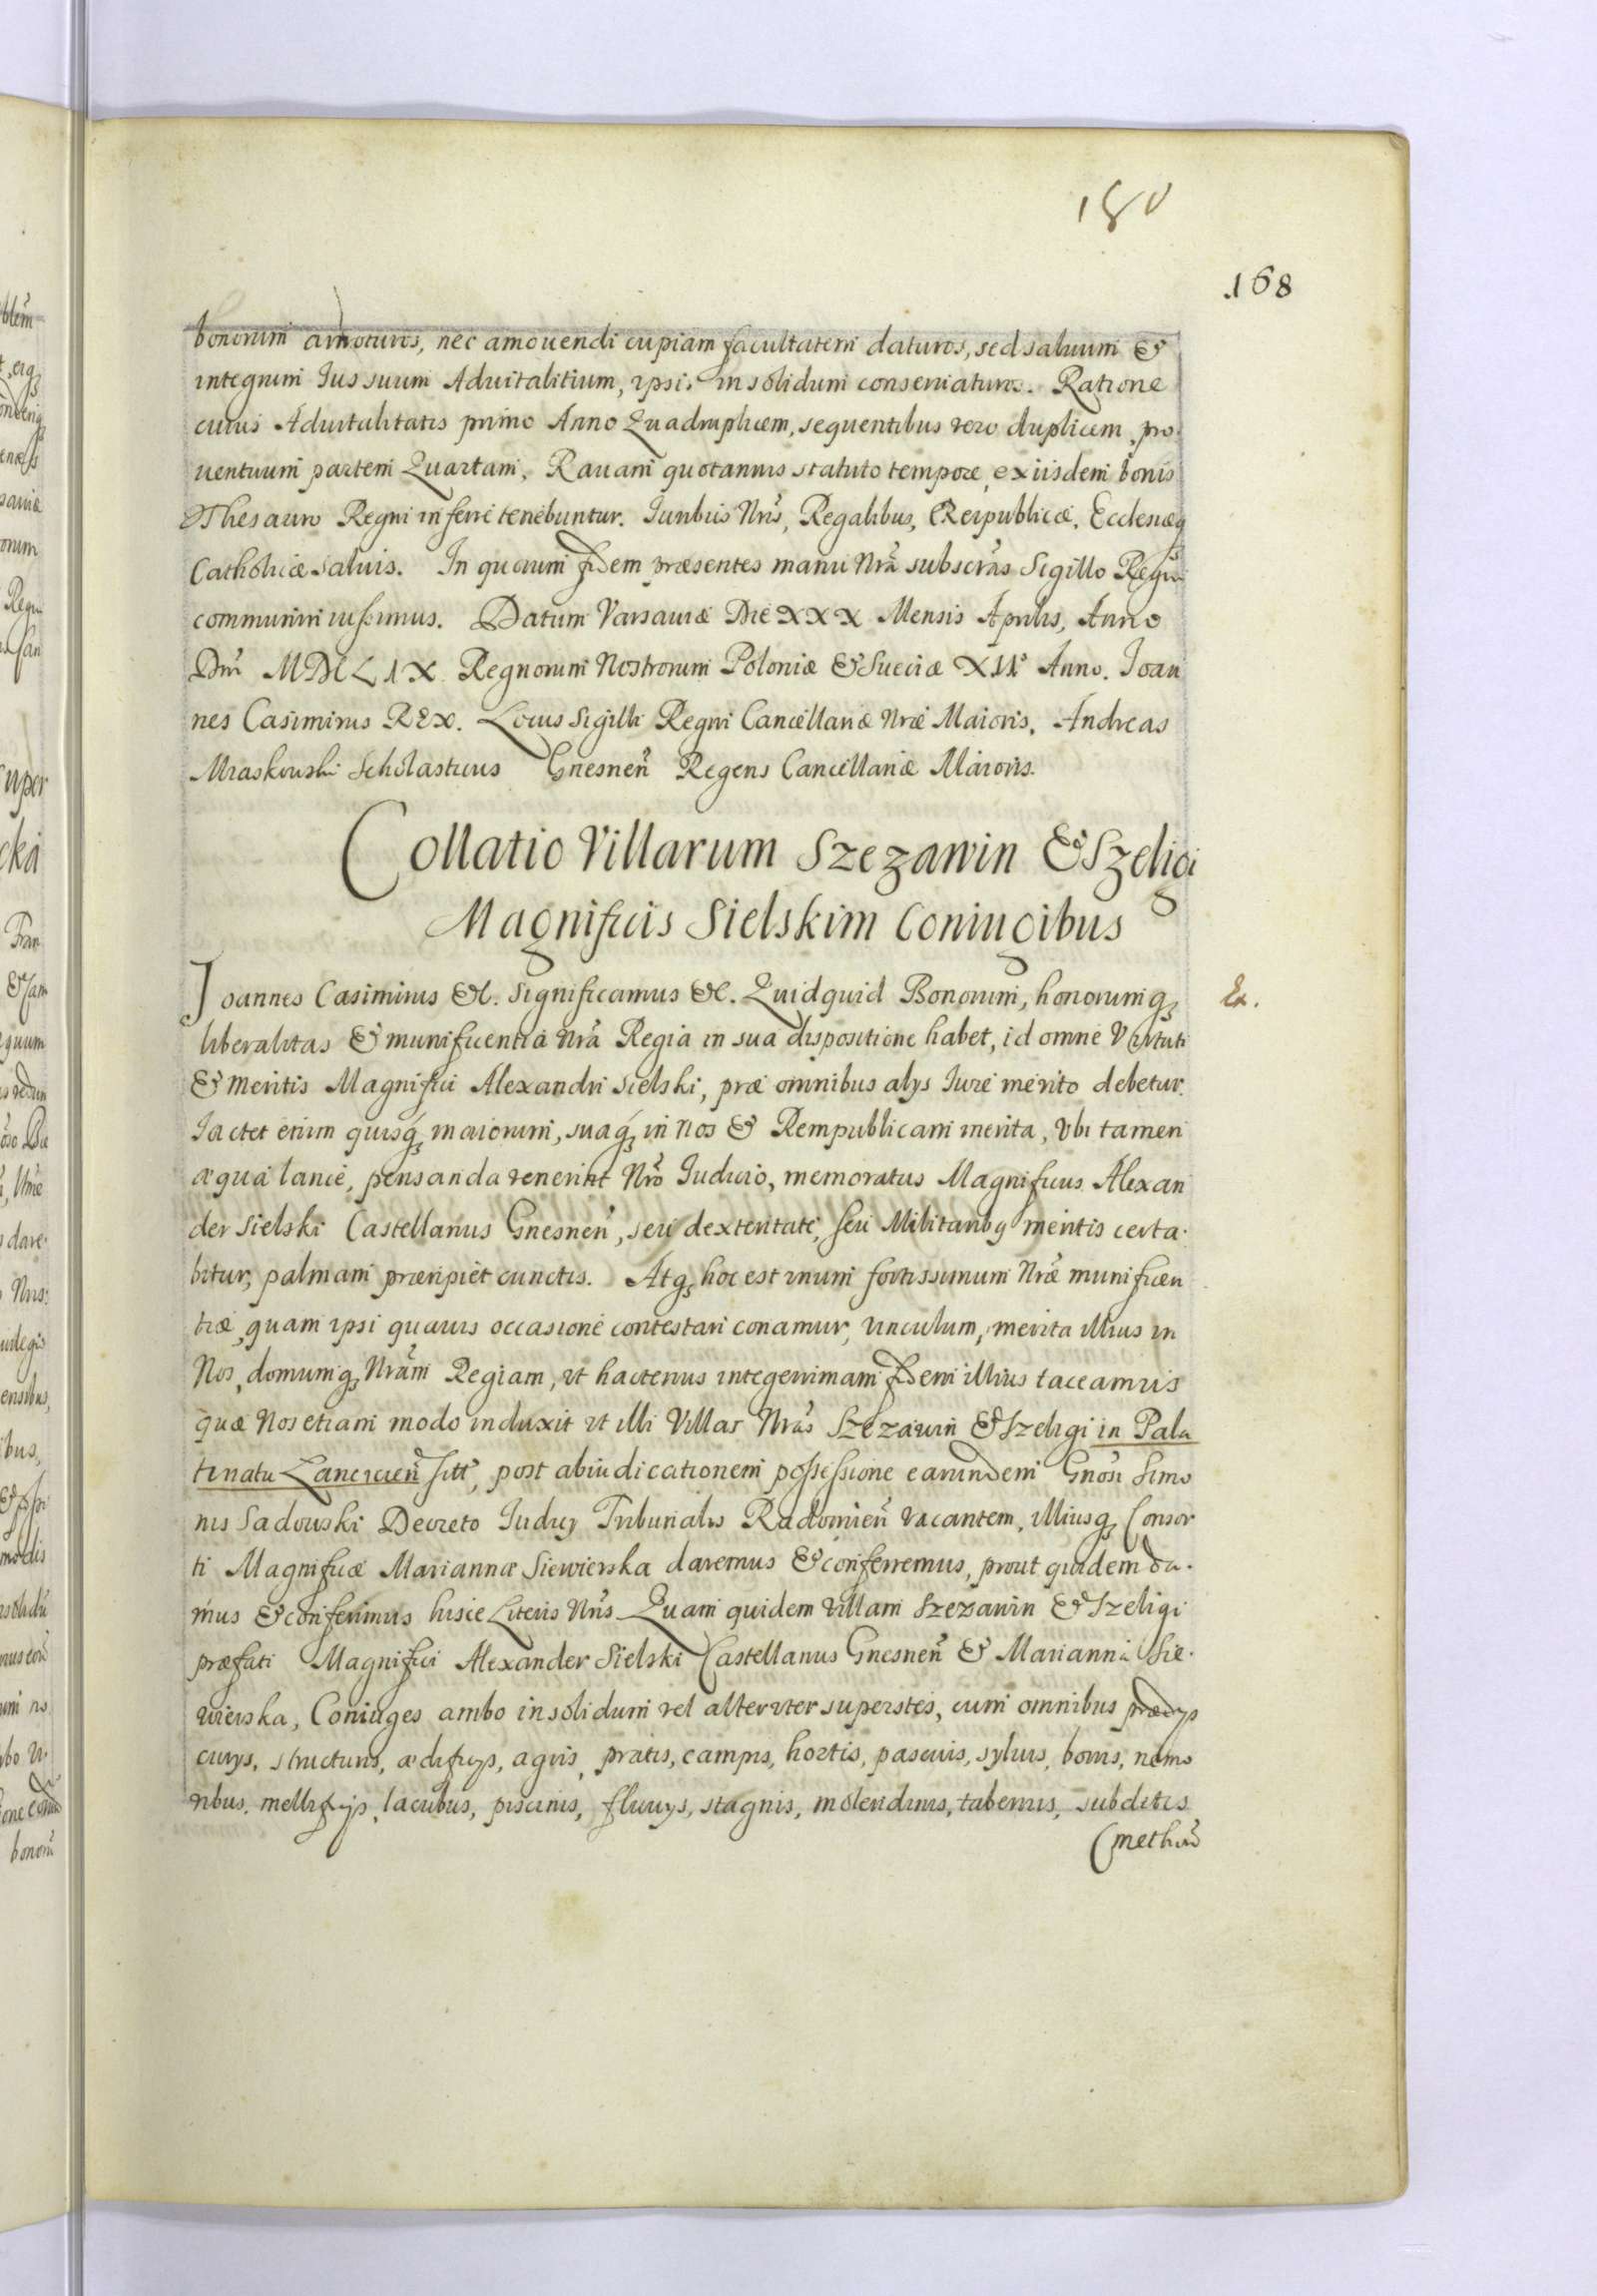 180
168
bonorum amoturos, nec amouendi cuipiam facultatem daturos, sed saluum &
integrum Ius suum Aduitalitium, ipsis in solidum conseruaturos. Ratione
cuius Aduitalitatis primo Anno Quadruplicem, sequentibus vero duplicem pro
uentuum partem Quartam, Rauam quotannis statuto tempore, ex iisdem bonis
Thesauro Regni inferre tenebuntur. Iuribus Nris, Regalibus, Reipublicæ, Ecclesiæq
Catholicæ saluis. In quorum fidem præsentes manu Nrâ subscras Sigillo Regni
communiri iussimus. Datum Varsauiæ Die XXX Mensis Aprilis, Anno
Dni MDCLIX Regnorum Nostrorum Poloniæ & Sueciæ XI Anno. Ioan
nes Casimirus REX. Locus Sigilli Regni Cancellariæ Nræ Maioris. Andreas
Miaskowski Scholasticus Gnesnen Regens Cancellariæ Maioris.
Collatio Villarum Szczawin & Szeligi
Magnificis Sielskim Coniugibus
Joannes Casimirus &c. Significamus &c. Quidquid Bonorum, honorumq
Ex.
liberalitas & munificentia nra Regia in sua dispositione habet, id omne Virtuti
& meritis Magnifici Alexandri Sielski, præ omnibus alys Iure merito debetur.
Iactet etium quisq maiorum, suaq in nos & Rempublicam merita, Vbi tamen
æqua lance, pensanda venerint Nro Iudicio, memoratus Magnificus Alexan
der Sielski Castellanus Gnesnen, seu dexteritate, seu Militariby meritis certa-
bitur, palmam præripiet cunctis. Atq hoc est unum fortissimum Nræ munificen
tiæ, quam ipsi quauis occasione contestari conamur, vinculum, merita illius in
Nos, domumq Nram Regiam, vt hactenus integerrimam fidem illius taceamus
quæ Nos etiam modo induxit vt illi Villas Nras Szczawin & Szeligi in Pala
tinatu Lancicien sitt, post abiudicationem possessione earumdem Gnosi Simo
nis Sadowski Decreto Iudicy Tribunalis Radomien vacantem, illiusq Consor
ti Magnificæ Mariannæ Siewierska daremus & conferremus, prout quidem da-
mus & conferimus hisce Literis Nris. Quam quidem villam Szczawin & Szeligi
præfati Magnifici Alexander Sielski Castellanus Gnesnen & Marianna Sie-
wierska, Coniuges ambo in solidum vel alteruter superstes, cum omnibus prædys
curys, structuris, ædificys, agris, pratis, campis, hortis, pascuis, syluis, boris, nemo
ribus, mellificys, lacubus, piscinis, fluuys, stagnis, molendinis, tabernis, subditis
Cmethon